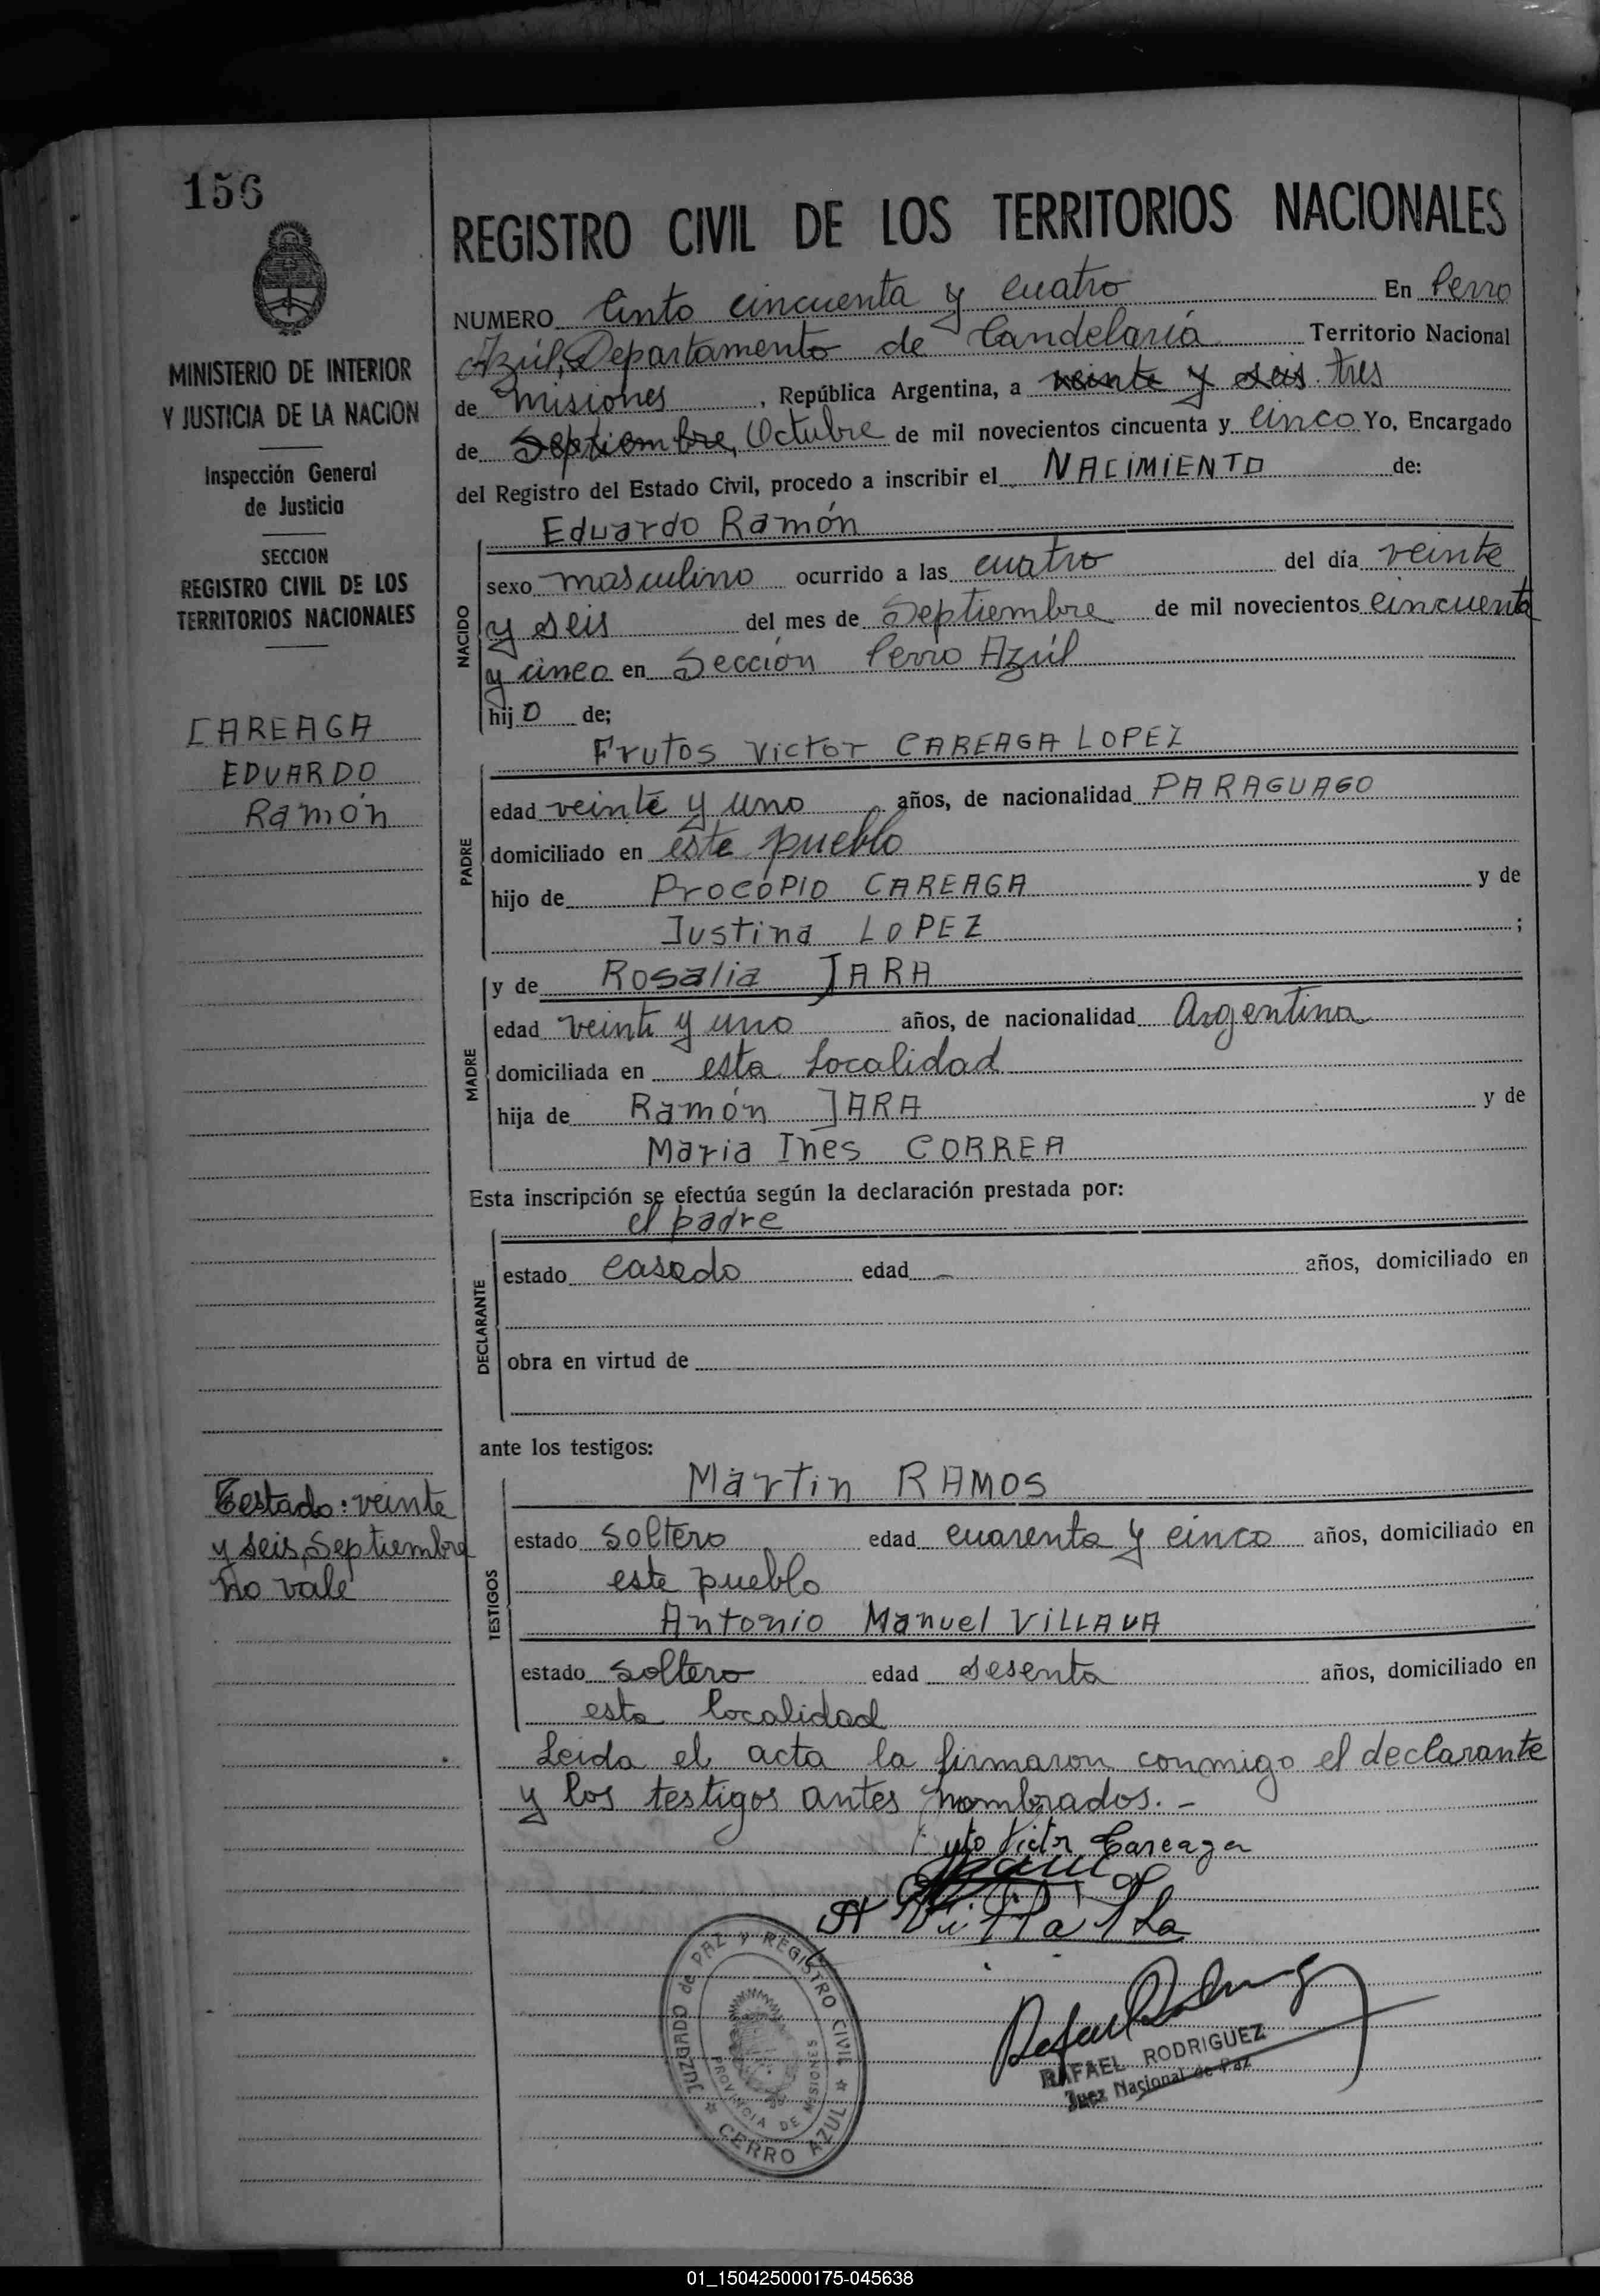 156
REGISTRO CIVIL DE LOS TERRITORIOS NACIONALES
MINISTERIO DE INTERIOR
Y JUSTICIA DE LA NACION
Inspección General
de Justicia
SECCION
REGISTRO CIVIL DE LOS
TERRITORIOS NACIONALES
CAREAGA
EDUARDO
Ramón
Testado: veinte
y seis, Septiembre
No vale
NUMERO Cinto cincuenta y cuatro En Cerro
Azúl, Departamento de Candelaria Territorio Nacional
de misiones, República Argentina, a veinte y seis tres
de Septiembre, Octubre de mil novecientos cincuenta y cinco Yo, Encargado
del Registro del Estado Civil, procedo a inscribir el NACIMIENTO de:
NACIDO
Eduardo Ramón
sexo masculino ocurrido a las cuatro del día veinte
y seis del mes de Septiembre de mil novecientos cincuenta
y cinco en Sección Cerro Azúl
hijo de;
PADRE
Frutos Victor CAREAGA LOPEZ
edad veinte y uno años, de nacionalidad PARAGUAGO
domiciliado en este pueblo
hijo de Procopio CAREAGA y de
Justina LOPEZ ;
MADRE
y de Rosalia JARA
edad veinte y uno años, de nacionalidad Argentina
domiciliada en esta Localidad
hija de Ramón JARA y de
Maria Ines CORREA
Esta inscripción se efectúa según la declaración prestada por:
DECLARANTE
el padre
estado casado edad - años, domiciliado en
obra en virtud de
ante los testigos:
TESTIGOS
Martin RAMOS
estado soltero edad cuarenta y cinco años, domiciliado en
este pueblo
Antonio Manuel VILLAVA
estado soltero edad sesenta años, domiciliado en
esta localidad
Leida el acta la firmaron conmigo el declarante
y los testigos antes nombrados. -
Victor Careaga
JUZGADO de PAZ Y REGISTRO CIVIL
PROVINCIA DE MISIONES
CERRO AZUL
RAFAEL RODRIGUEZ
Juez Nacional de Paz
01_150425000175-045638